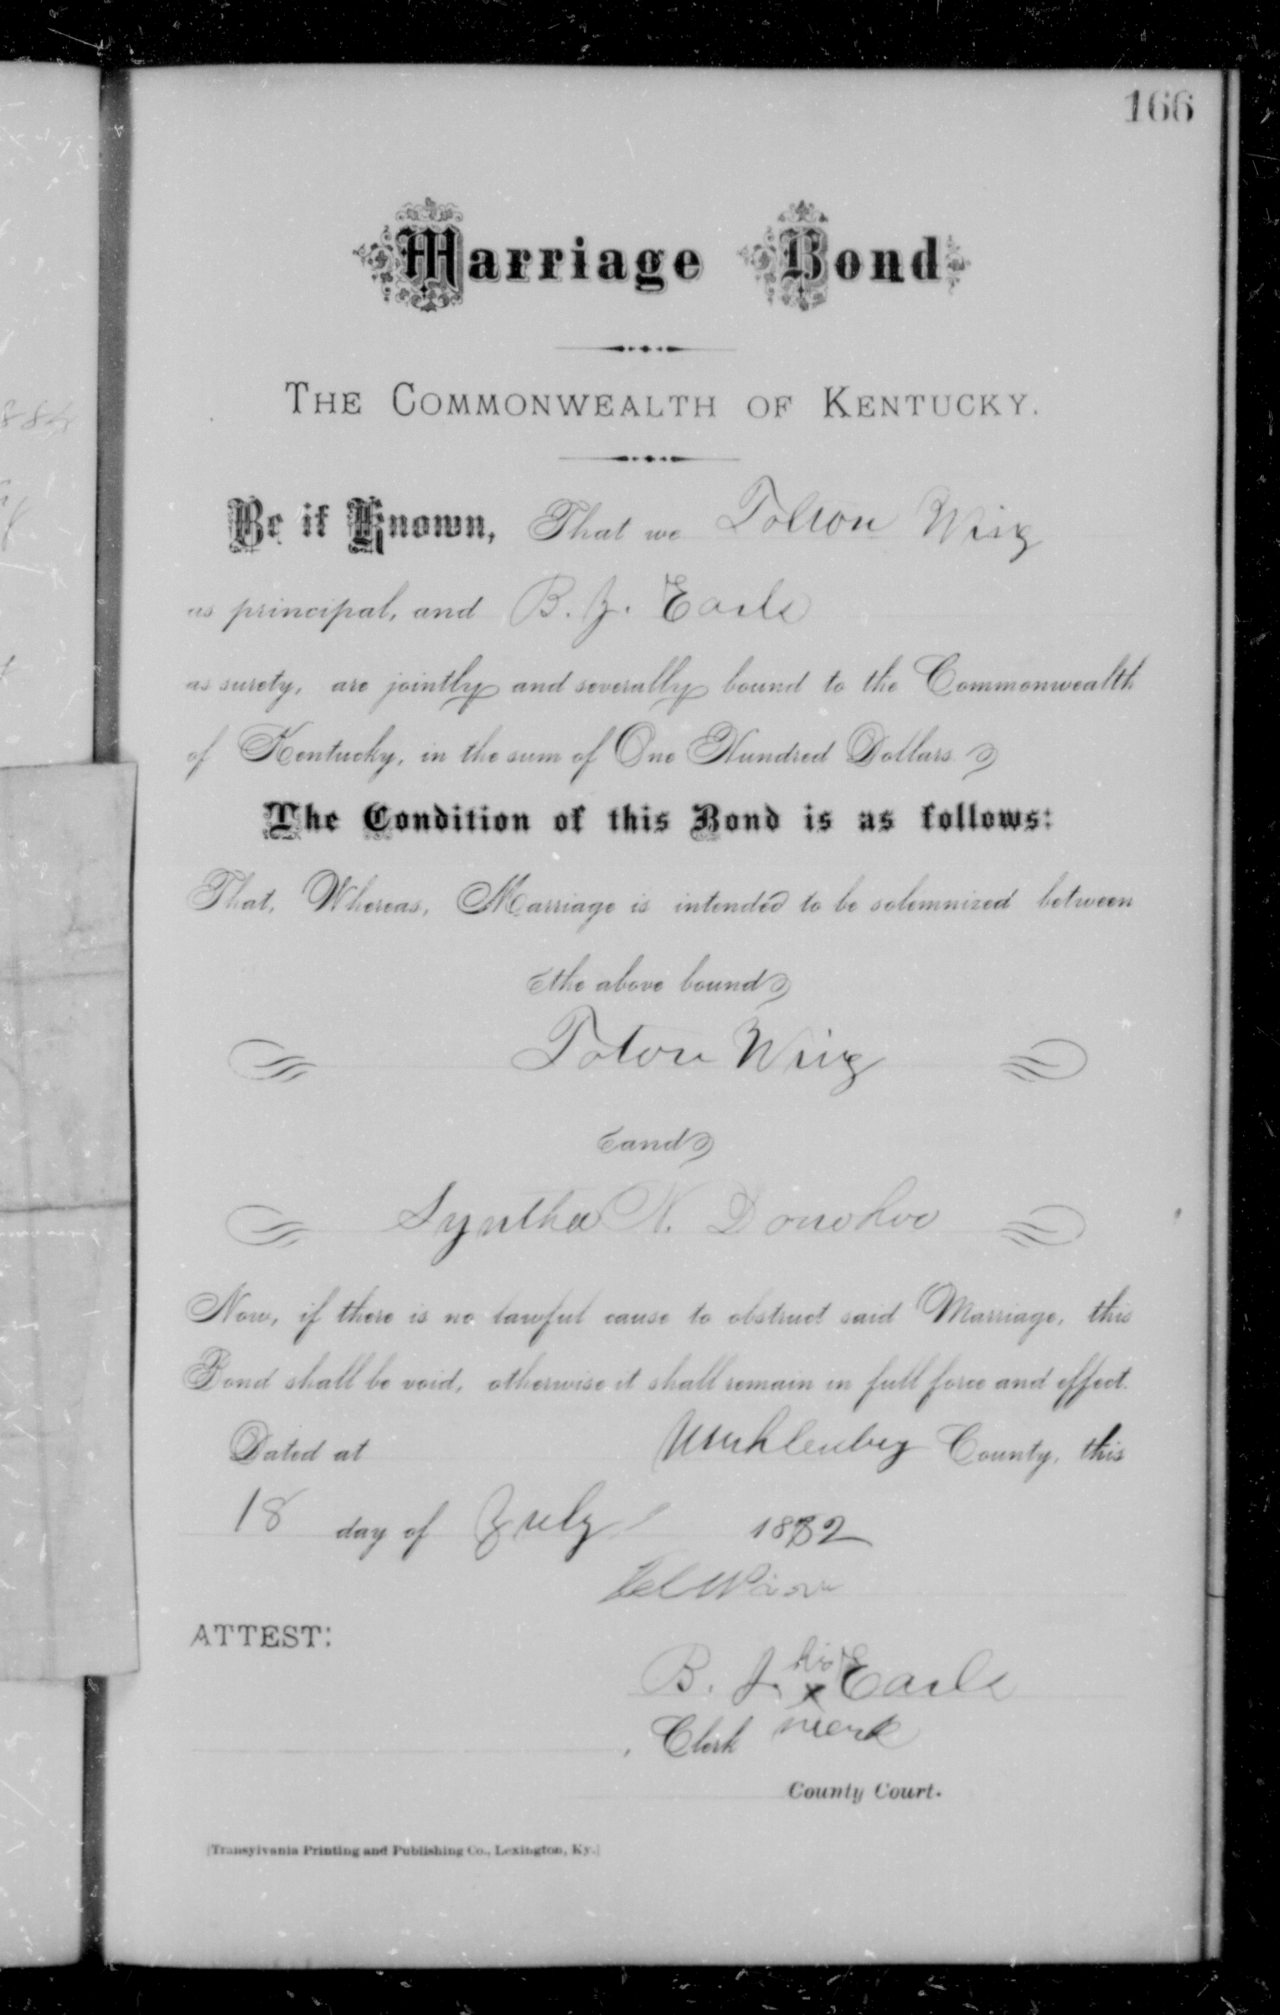 166
Marriage Bond
THE COMMONWEALTH OF KENTUCKY.
Be it Known, That we Tolton Wing
as principal, and B. J. Earle
as surety, are jointly and severally bound to the Commonwealth
of Kentucky, in the sum of One Hundred Dollars
The Condition of this Bond is as follows:
That, Whereas, Marriage is intended to be solemnized between
the above bound
Wing
and
Syntha N. Donohoo
Now, if there is no lawful cause to obstruct said Marriage, this
Bond shall be void, otherwise it shall remain in full force and effect.
Dated at Muhlenberg County, this
18 day of July 1882
ATTEST:
his
B. J. x Earle
Clerk mark
County Court.
[Transylvania Printing and Publishing Co., Lexington, Ky.]